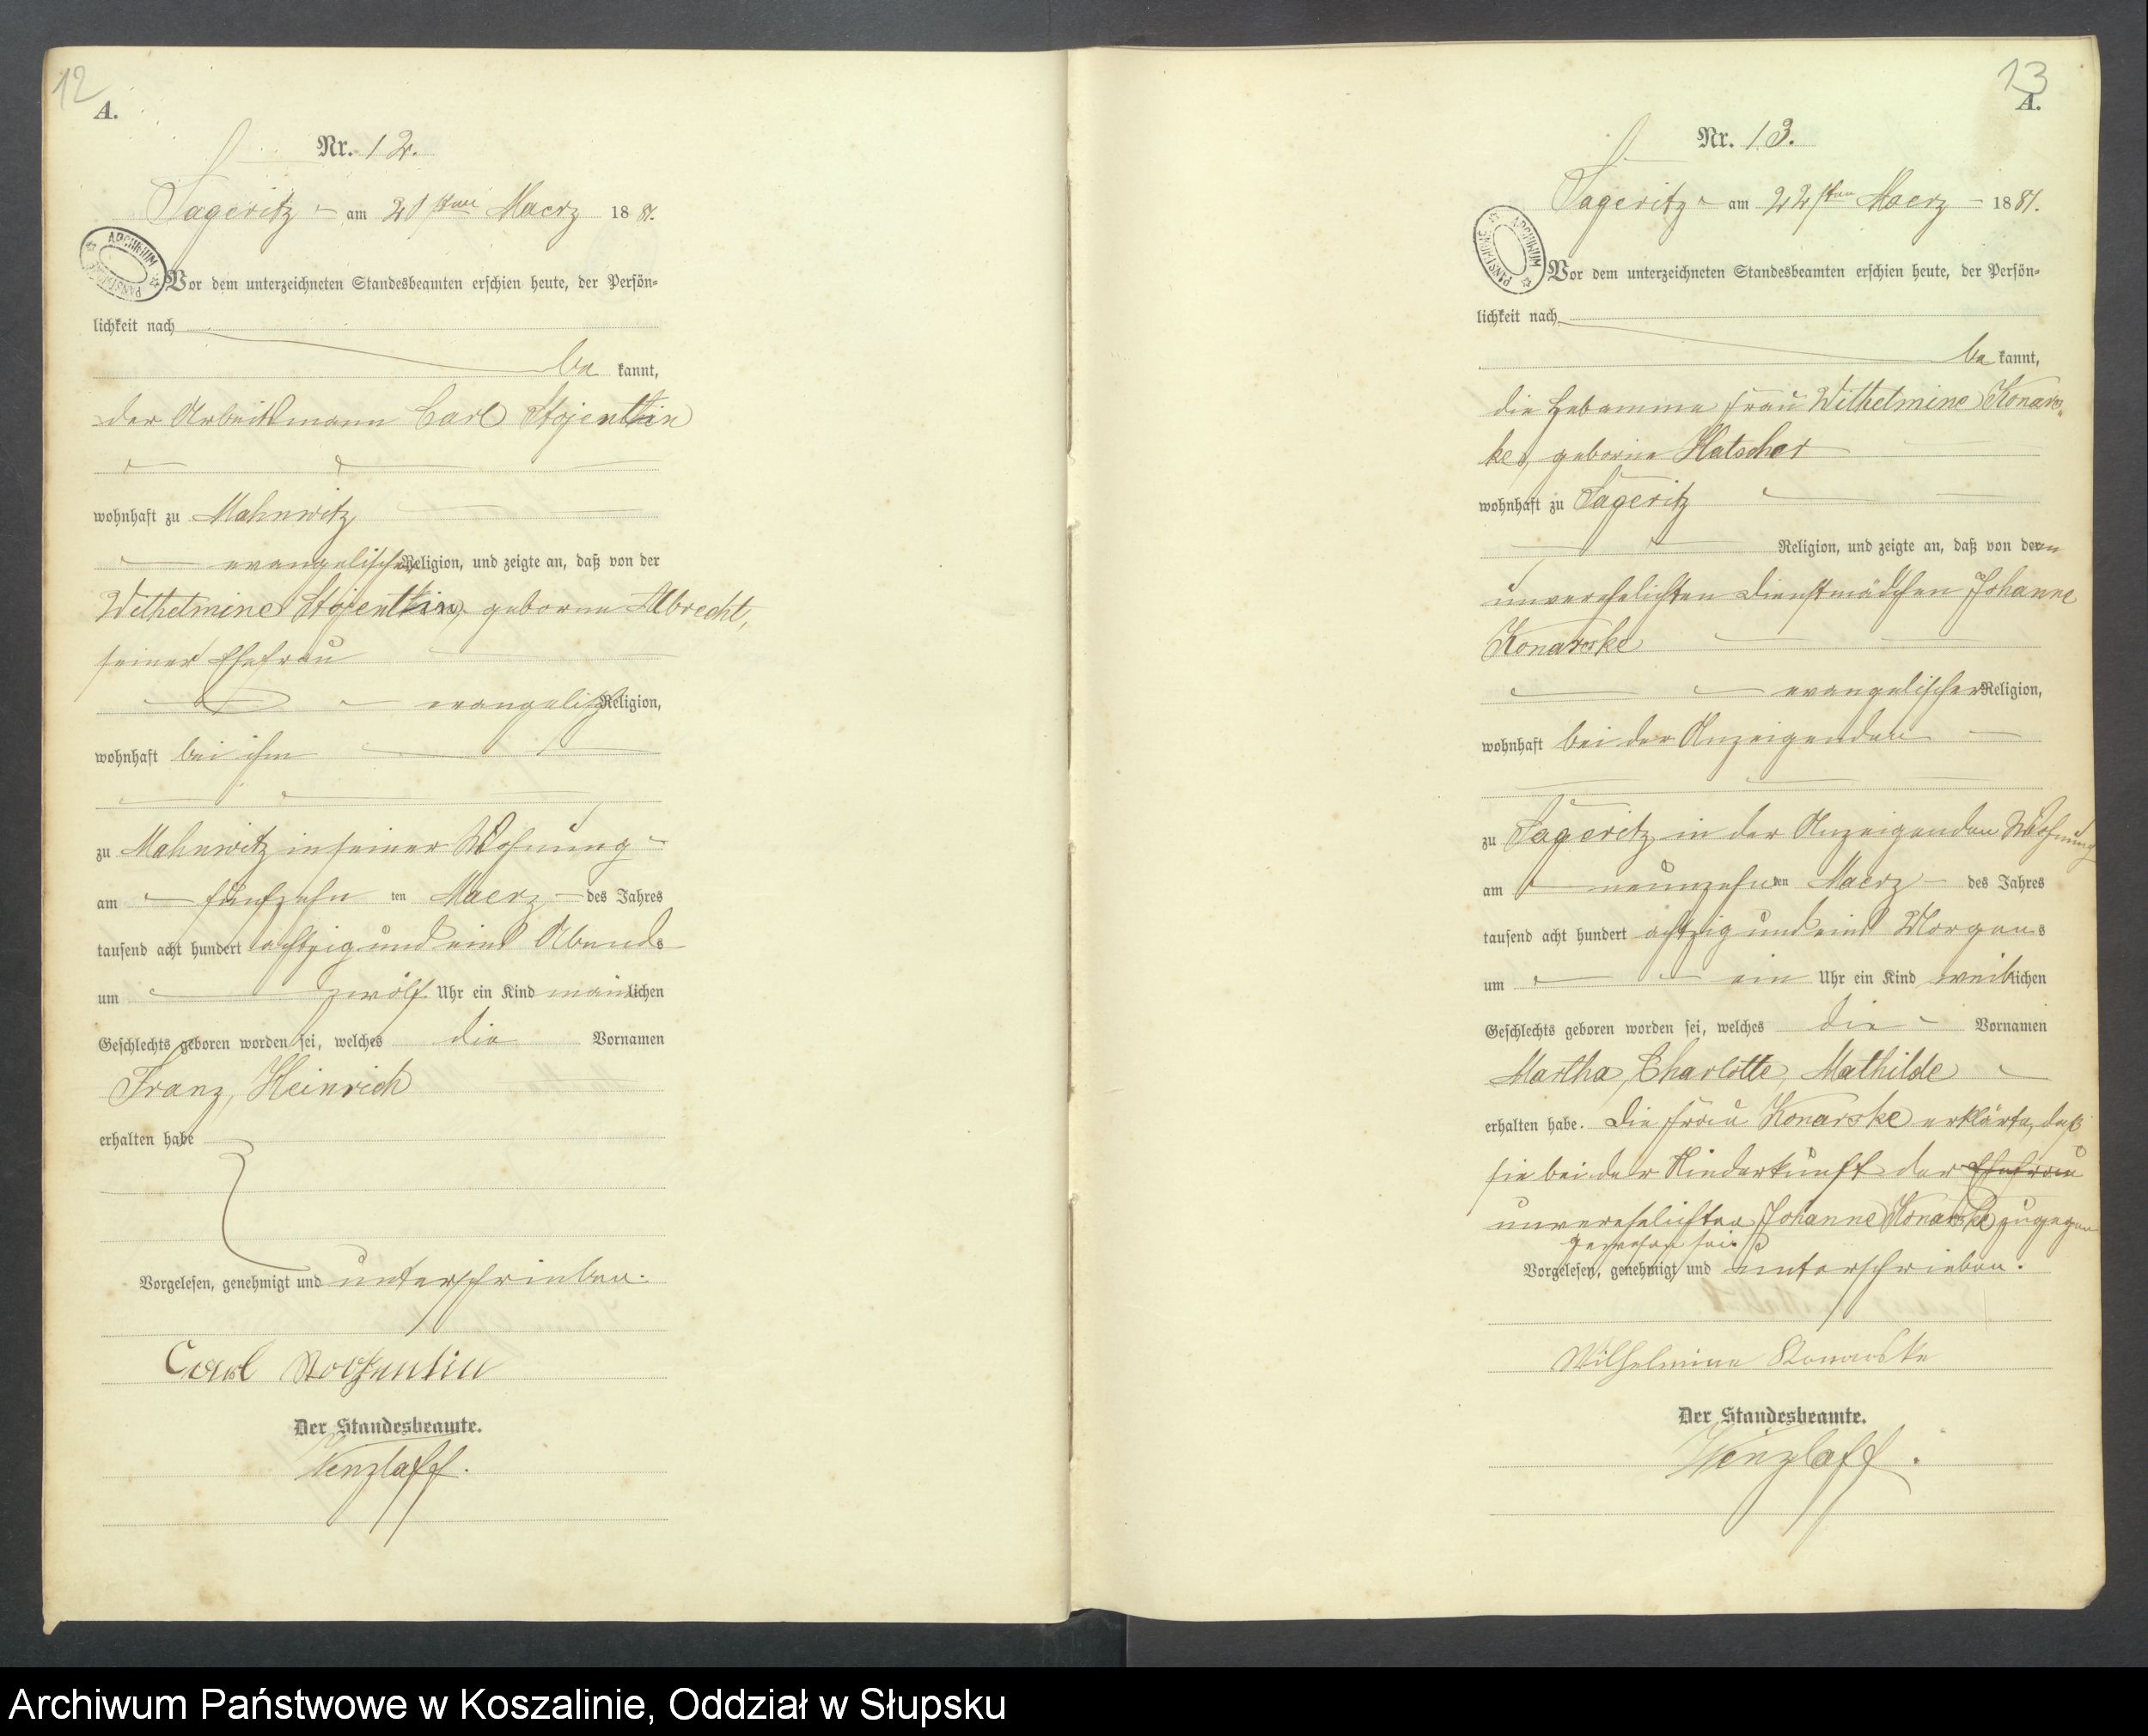 12
A.
Nr. 12.
Sageritz am 21sten Maerz 1881.
ARCHIWUM PAŃSTWOWE
Vor dem unterzeichneten Standesbeamten erschien heute, der Persön=
lichkeit nach
be kannt,
der Arbeitsmann Carl Stojenthin
wohnhaft zu Mahnwitz
evangelischer Religion, und zeigte an, daß von der
Wilhelmine Stojenthin, geborne Albrecht,
seiner Ehefrau
evangelisch Religion,
wohnhaft bei ihm
zu Mahnwitz in seiner Wohnung
am fünfzehn ten Maerz des Jahres
tausend acht hundert achtzig und eins Abends
um zwölf Uhr ein Kind männlichen
Geschlechts geboren worden sei, welches die Vornamen
Franz, Heinrich
erhalten habe
Vorgelesen, genehmigt und unterschrieben.
Carl
Der Standesbeamte.
Wenzlaff.
13
A.
Nr. 13.
Sageritz am 22sten Maerz 1881.
ARCHIWUM PAŃSTWOWE
Vor dem unterzeichneten Standesbeamten erschien heute, der Persön=
lichkeit nach
be kannt,
die Hebamme Frau Wilhelmine Konars=
ke, geborne Hatscher
wohnhaft zu Sageritz
Religion, und zeigte an, daß von deren
unverehelichten Dienstmädchen Johanne
Konarske
evangelischer Religion,
wohnhaft bei der Anzeigenden
zu Sageritz in der Anzeigenden Wohnung
am neunzehnten Maerz des Jahres
tausend acht hundert achtzig und eins Morgens
um ein Uhr ein Kind weiblichen
Geschlechts geboren worden sei, welches die Vornamen
Martha, Charlotte, Mathilde
erhalten habe. Die Frau Konarske erklärte, daß
sie bei der Niederkunft der Ehefrau
unverehelichten Johanne Konarske zugegen
gewesen sei.
Vorgelesen, genehmigt und unterschrieben.
Wilhelmine Konarske
Der Standesbeamte.
Wenzlaff.
Archiwum Państwowe w Koszalinie, Oddział w Słupsku